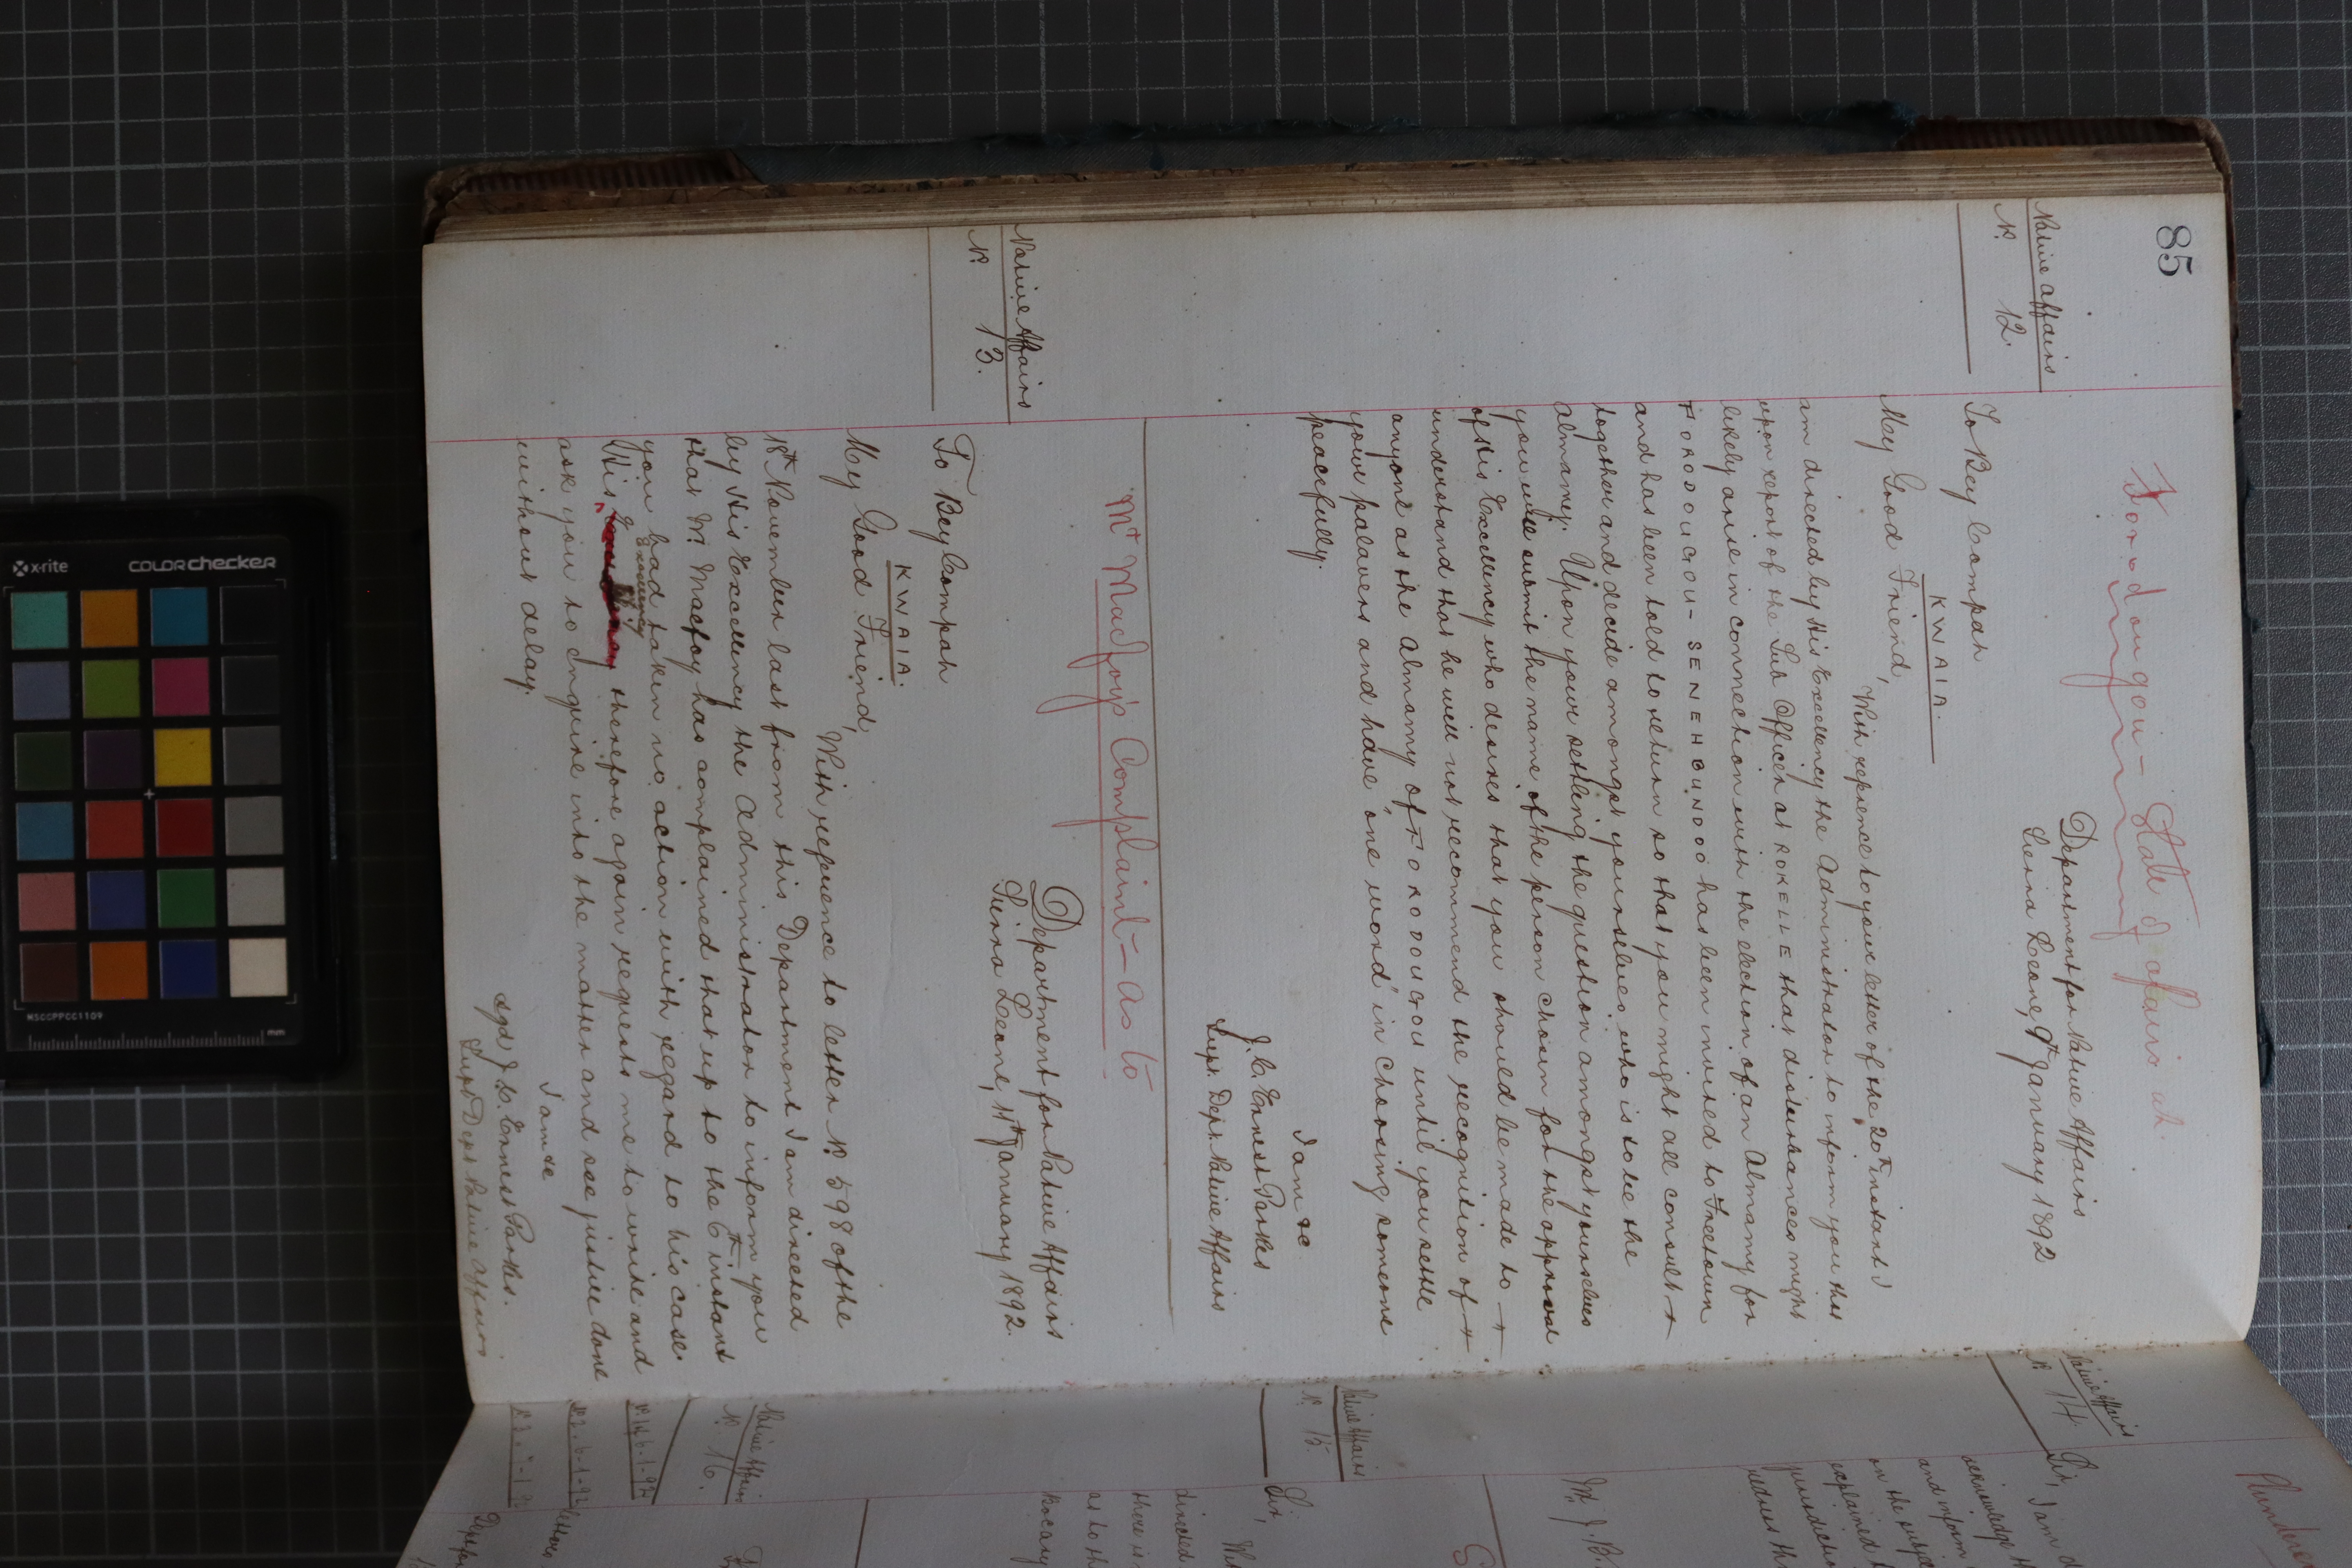 85
Forodougou - State of affairs at.
Native Affairs
No. 12.
Department for Native Affairs
Sierra Leone, 9th January 1892
To Bey Compah
KWAIA.
My Good Friend,
With refrence to your letter of the 20th instant I
am directed by His Excellency the Administrator to inform you that
upon report of the Sub Officer at ROKELLE that disturbances might
likely arise in connection with the election of an Almamy for
FORODOUGOU - SENEHBUNDOO has been invited to Freetown
and has been told to return so that you might all consult +
together and decide amongst yourselves who is to be the
Almamy. Upon your settling the question amongst yourselves
you will submit the name of the person chosen for the approval
of His Excellency who desires that you should be made to +
understand that he will not recommend the recognition of +
anyone as the Almamy of FORODOUGOU until you settle
your palavers and have "one word" in choosing someone
peacefully.
I am &c
J. C. Ernest Parkes
Supt. Dept. Native Affairs
Mr Macfoy's Complaint - As to
Native Affairs
No. 13.
Department for Native Affairs
Sierra Leone, 11th January 1892.
To Bey Compah
KWAIA.
My Good Friend,
With reference to letter No. 598 of the
18th November last from this Department I am directed
by His Excellency the Administrator to inform you
that Mr. Macfoy has complained that up to the 6th instant
you had taken no action with regard to his case.
His Excellency therefore again requests me to write and
ask you to Inquire into the matter and see justice done
without delay.
I am &c
sgd J. C. Ernest Parkes.
Supt Dept Native Affairs
Native Affairs
No. 14
Sir,
I am d
acknowledge th
and inform
on the subject
explained t
jurisdiction
redress th
Mr. J. B.
Native Affairs
No. 15.
Sir,
directed
there is
as to th
Bocary
Native Affairs
No. 16.
x-rite
COLORchecker
MSCCPPCC1109
mm